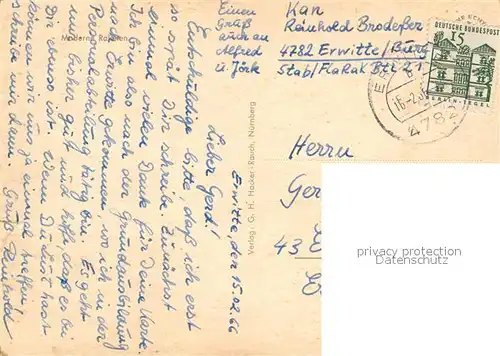 Einen
Gruß
auch an
Alfred
u. Jörk
Kan
Reinhold Brodeßer
4782 Erwitte/Burg
Stab/FlaRak Btl. 21
DEUTSCHE BUNDESPOST
15
BERLIN-TEGEL
16.-2.
4782
Moderne Raketen
Erwitte, den 15.02.66
Lieber Gerd!
Entschuldige bitte, daß ich erst
so spät Dir schreibe. Zunächst
einmal vielen Dank für Deine Karte.
Ich bin also nach der Grundausbildung
nach Erwitte gekommen, wo ich in der
Personalabteilung tätig bin. Es geht
mir bisher gut und hoffe, daß es bei
Dir ebenso ist. Wenn Du Lust hast
können wir uns ja einmal treffen,
schreib mir dann.
Gruß Reinhold
Verlag: G. H. Hacker-Rauch, Nürnberg
Herrn
Ger
43 E
E
privacy protection
Datenschutz